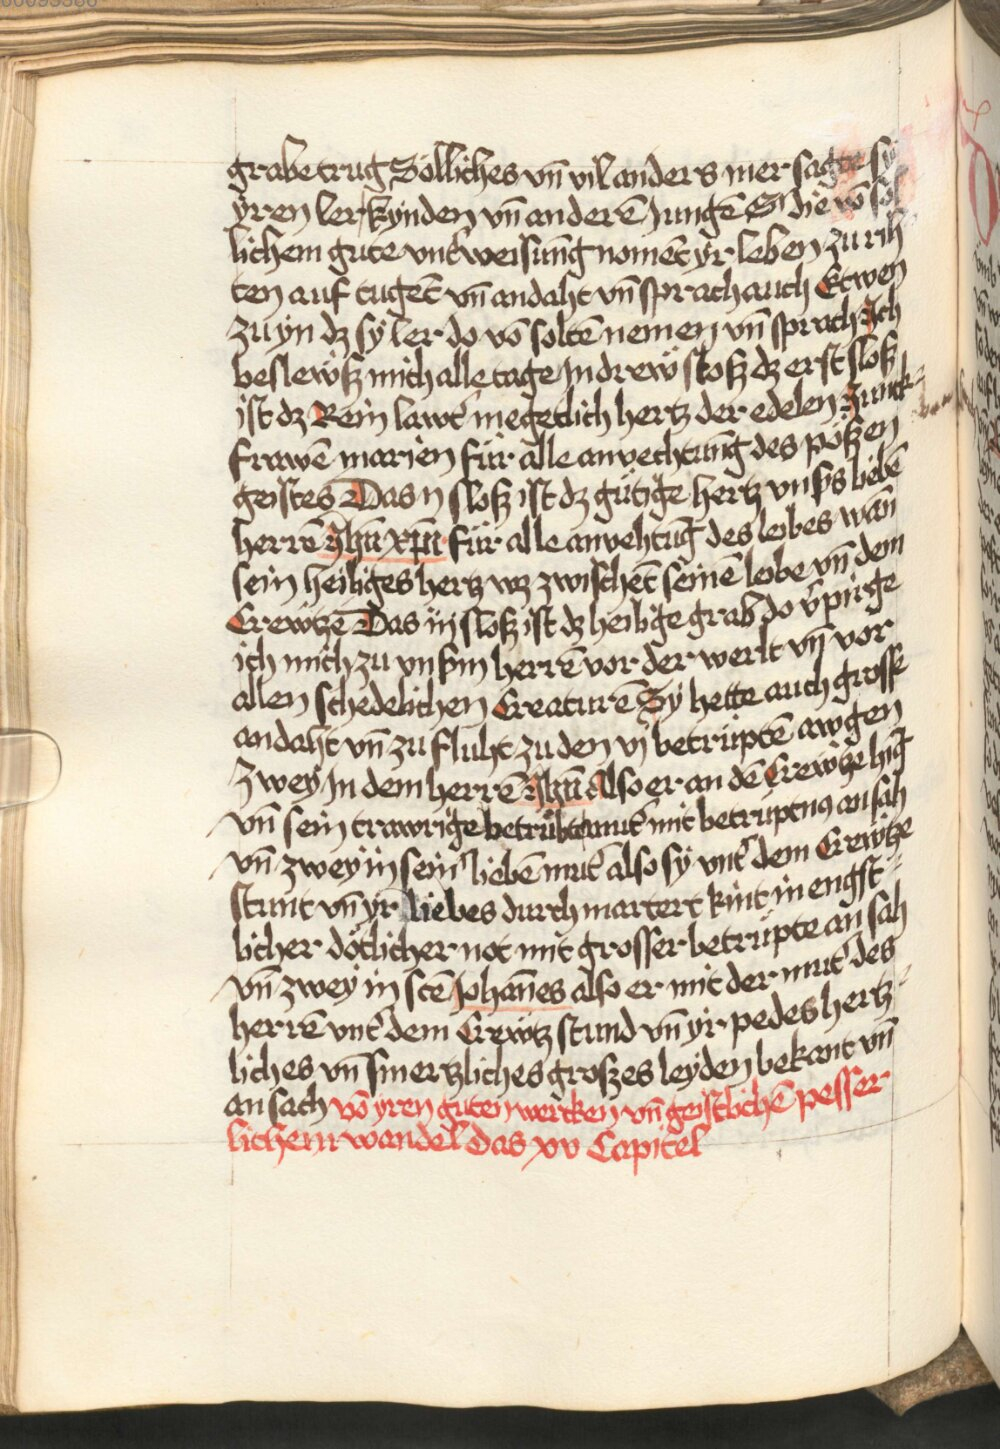 grabe trug Sölliches vn̄ vil anders mer sagte sy
yren ler kynden vn̄ anderē Jungē S' die vō söl
lichem gute vnt' weisung nomēt yr leben zu rih
ten auf tugēt vn̄ andaht vn̄ sprach auch Etwen
zu yn dz sy ler do vō soltē nemen vn̄ sprach Ich
beslewß mich alle tage Jn drew sloß dz erst sloß
ist dz Rein lawt' megetlich hertz der edelen Junck
frawē marien für alle anvechtung des pößen
geistes Das ij sloß ist dz gütige hertz vnßs liebē
herrē Jhū xp̄ū für alle anvehtūg des leibes wan̄
sein heiliges hertz wz zwischēt seinē leibe vn̄ dem
Crewtzē Das iij sloß ist dz heilige grab do v'pirge
ich mich zu vnßm herrē vor der werlt vn̄ vor
allen schedelichen Creaturē Sy hette auch grosse
andaht vn̄ zu fluht zu den vj betrüptē awgen
Zwey Jn dem herrē Jhū Also er an dē Crewtze hīg
vn̄ sein trawrige betrübte mut' mit betrüptnus an sah
vn̄ zwey in sein' liebē mut' also sy vnt' dem Crewtze
stunt vn̄ yr liebes durch martert kint in engst
licher dötlicher not mit grosser betrüpte an sah
vn̄ zwey in scē Johan̄es also er mit der mut' des
herrē vnt' dem Crewtz stund vn̄ yr pedes hertz
liches vn̄ smertzliches großes leyden bekant vn̄
an sach vō yren guten wercken vn̄ geistlichē pesser
lichem wandel Das xv Capitel